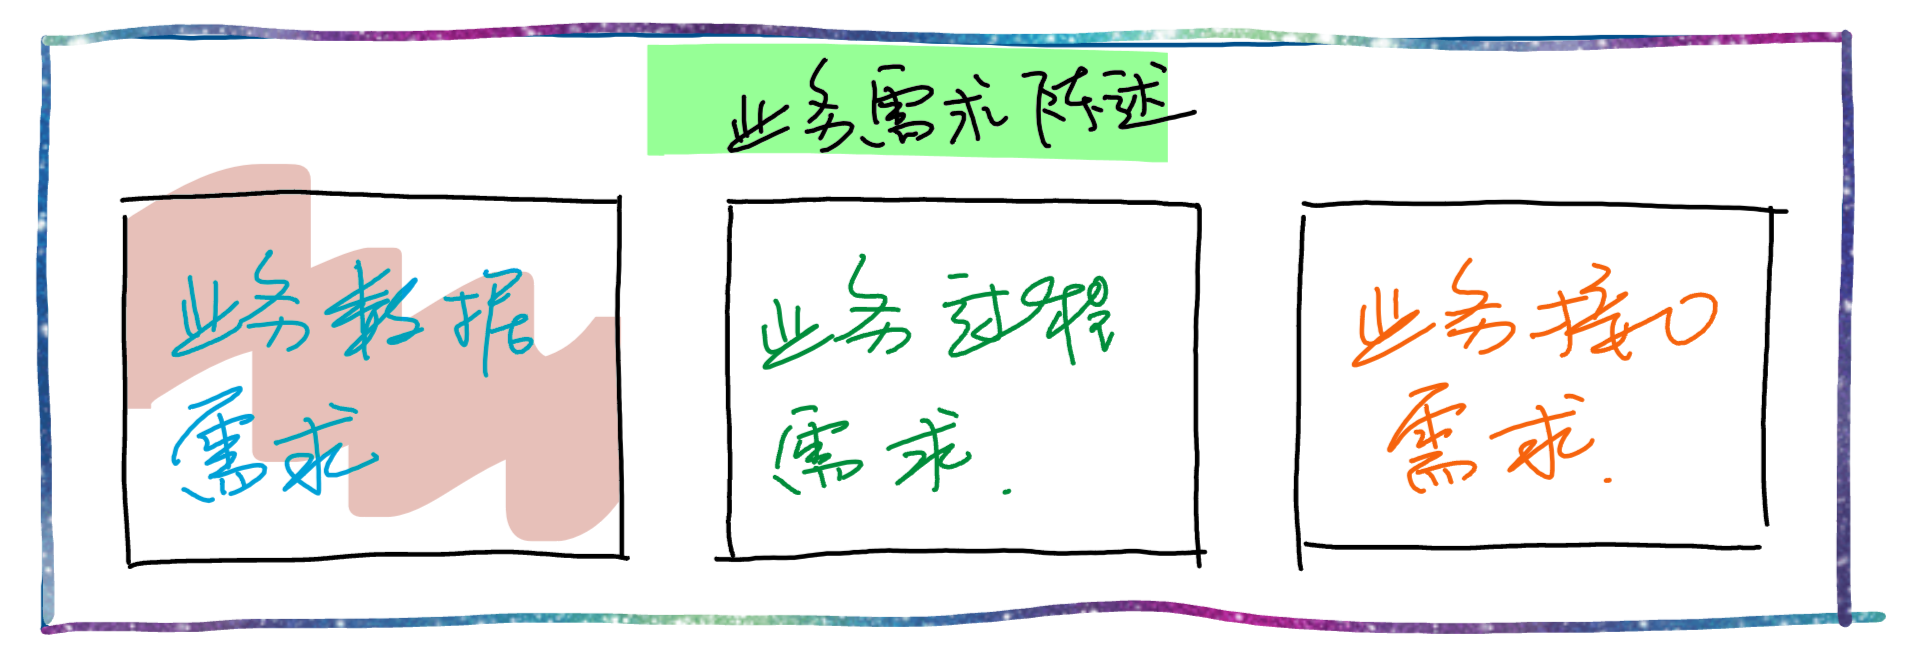 业务需求陈述
业务数据
需求
业务过程
需求.
业务接口
需求.